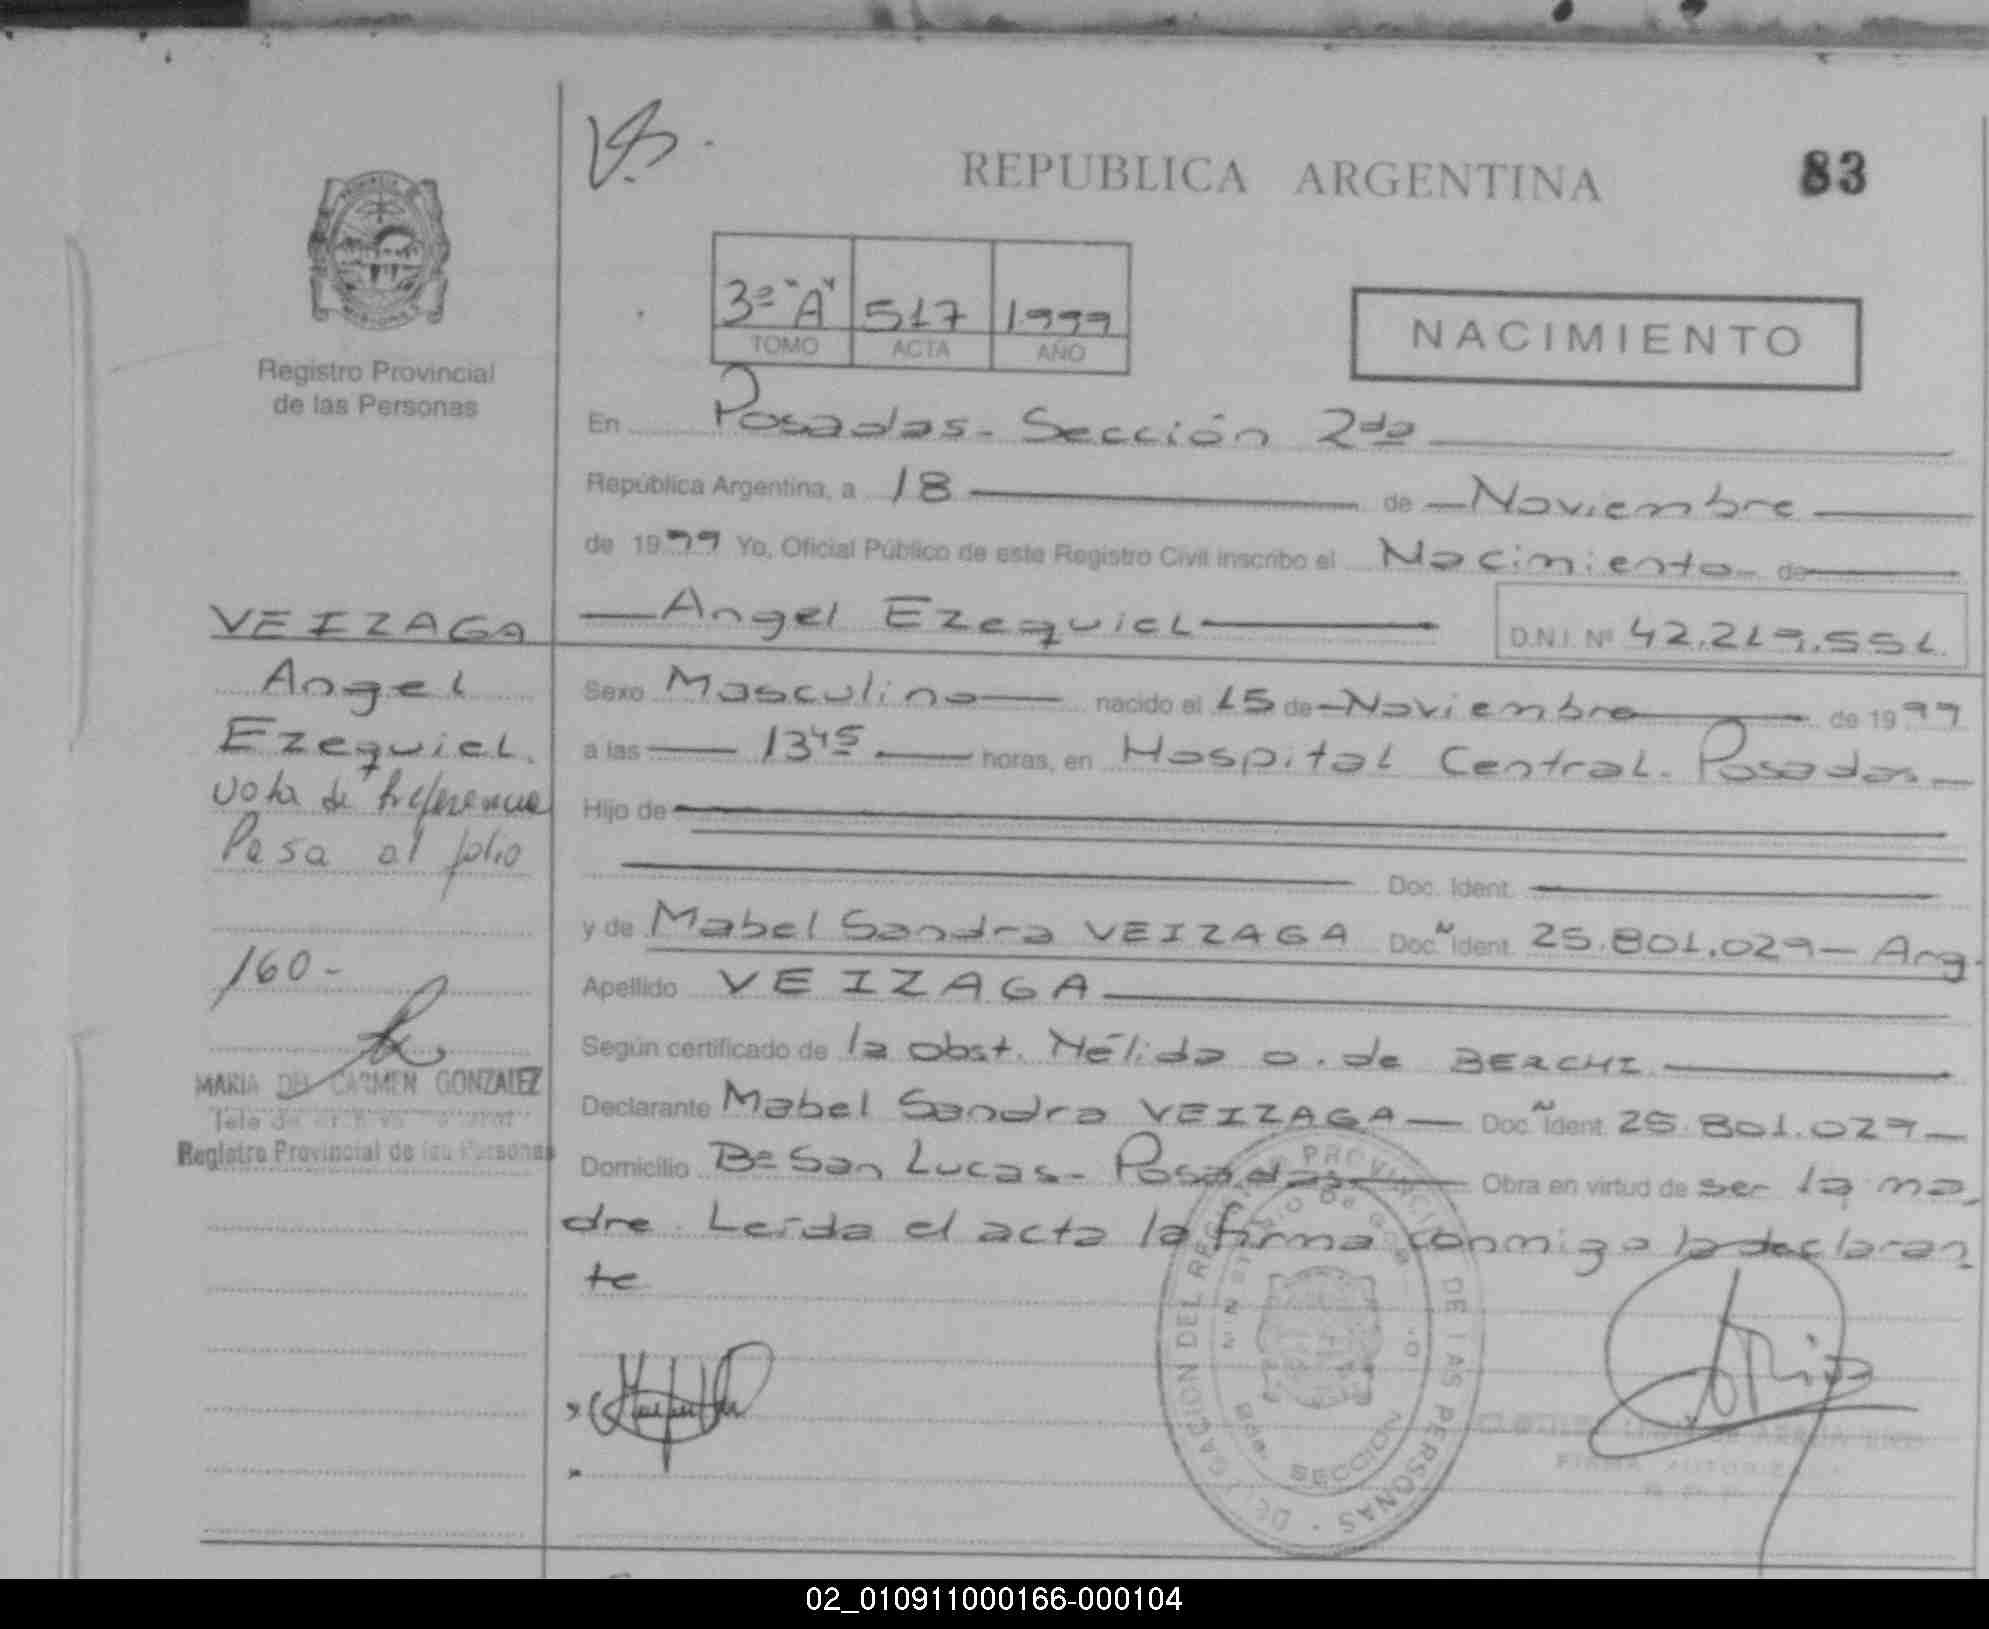 REPUBLICA ARGENTINA
83
3º "A" 517 1999
TOMO ACTA AÑO
NACIMIENTO
Registro Provincial
de las Personas
En Posadas - Sección 2da
República Argentina, a 18 de Noviembre
de 1999 Yo, Oficial Público de este Registro Civil inscribo el Nacimiento de
Angel Ezequiel D.N.I. Nº 42.219.551.
Sexo Masculino nacido el 15 de Noviembre de 1999
a las 13 45 horas, en Hospital Central. Posadas
Hijo de
Doc. Ident.
y de Mabel Sandra VEIZAGA Doc. Ident. 25.801.029 - Arg.
Apellido VEIZAGA
Según certificado de la obst. Nélida O. de BERCHI
Declarante Mabel Sandra VEIZAGA Doc. Ident. 25.801.029
Domicilio Bº San Lucas - Posadas Obra en virtud de ser la ma
dre. Leída el acta la firma conmigo la declaran
te
VEIZAGA
Angel
Ezequiel.
Nota de Referencia
Pasa al folio
160 -
MARIA DEL CARMEN GONZALEZ
Registro Provincial de las Personas
DELEGACION DEL REGISTRO PROVINCIAL DE LAS PERSONAS
MINISTERIO DE
2da SECCION
FIRMA AUTORIZADA
02_010911000166-000104